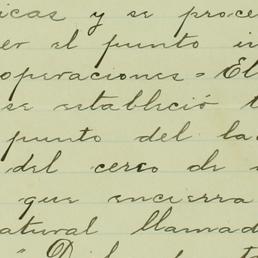 icas y se proce
er el punto in
operaciones = El
se estableció
punto del la
del cerco de
que encierra
atural llamad